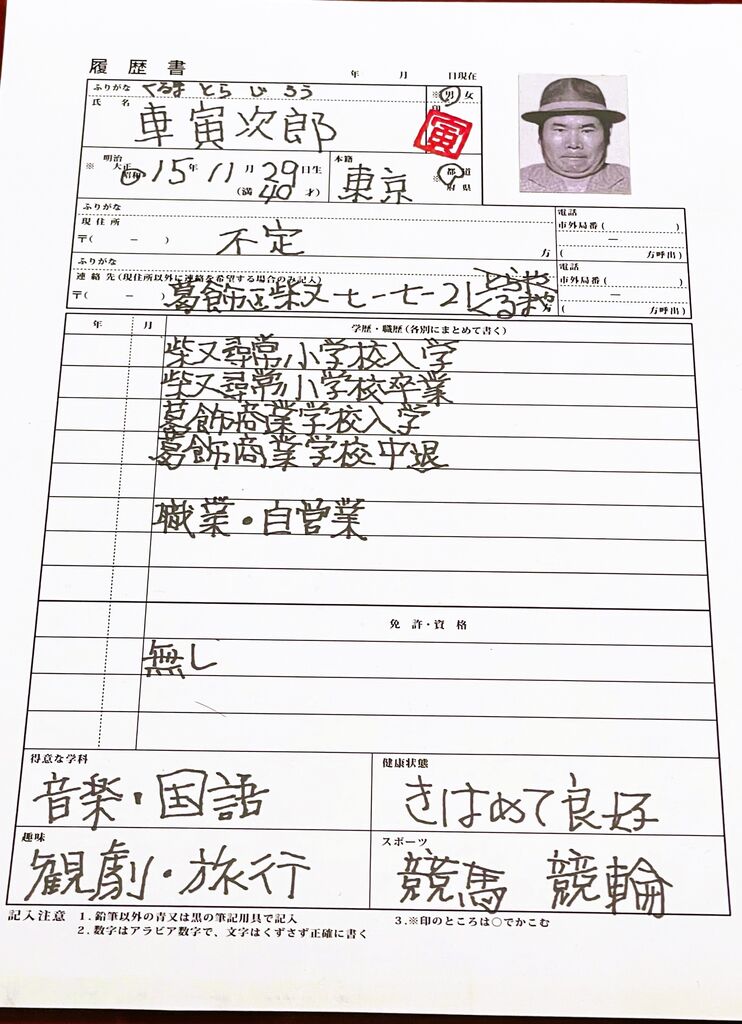 履歴書
年 月 日現在
ふりがな くるま とら じ ろう
※男 女
氏 名
車寅次郎
印
寅
明治
※ 大正
昭和
15年 11月 29日生
(満 40 才)
本籍
東京
都 道
府 県
ふりがな
現住所
〒( − )
不定
方
電話
市外局番( )
―
( 方呼出)
ふりがな
連絡先(現住所以外に連絡を希望する場合のみ記入)
とらや
〒( − )
葛飾区柴又七ー七ー2くるまや
電話
市外局番( )
―
( 方呼出)
年 月 学歴・職歴(各別にまとめて書く)
柴又尋常小学校入学
柴又尋常小学校卒業
葛飾商業学校入学
葛飾商業学校中退
職業・自営業
免 許・資 格
無し
得意な学科
音楽・国語
健康状態
きはめて良好
趣味
観劇・旅行
スポーツ
競馬 競輪
記入注意 1.鉛筆以外の青又は黒の筆記用具で記入
2.数字はアラビア数字で、文字はくずさず正確に書く
3.※印のところは○でかこむ